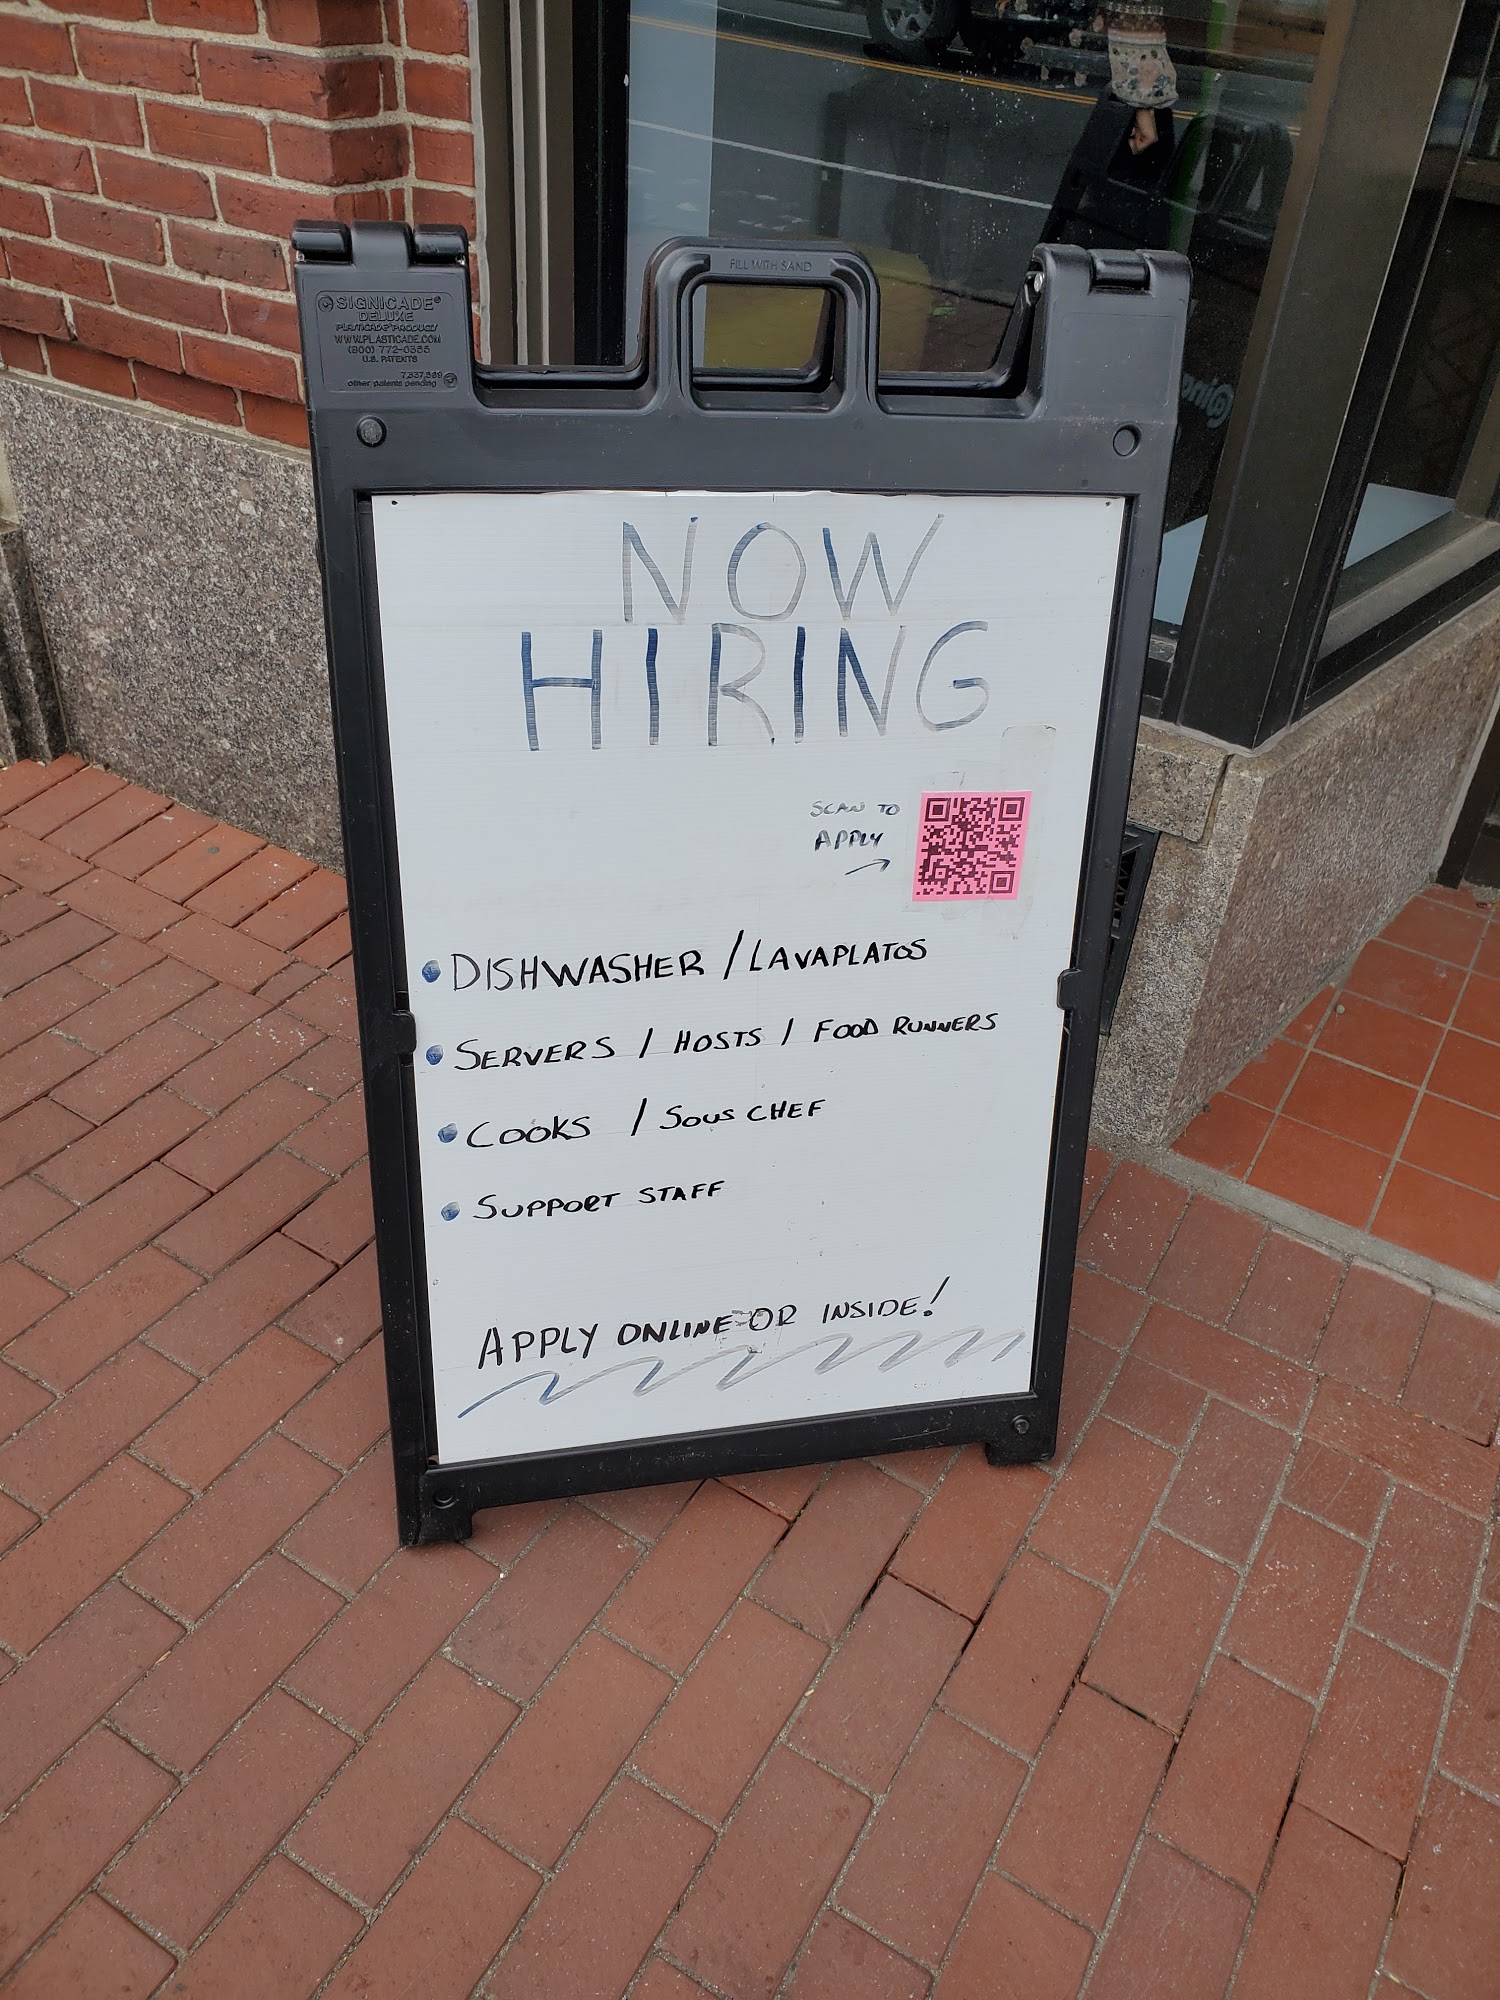 FILL WITH SAND
SIGNICADE®
DELUXE
PLASTICADE® PRODUCTS
WWW.PLASTICADE.COM
(800) 772-0355
U.S. PATENTS
7,337,569
other patents pending
NOW
HIRING
SCAN TO
APPLY
• DISHWASHER / LAVAPLATOS
• SERVERS / HOSTS / FOOD RUNNERS
• COOKS / SOUS CHEF
• SUPPORT STAFF
APPLY ONLINE OR INSIDE!